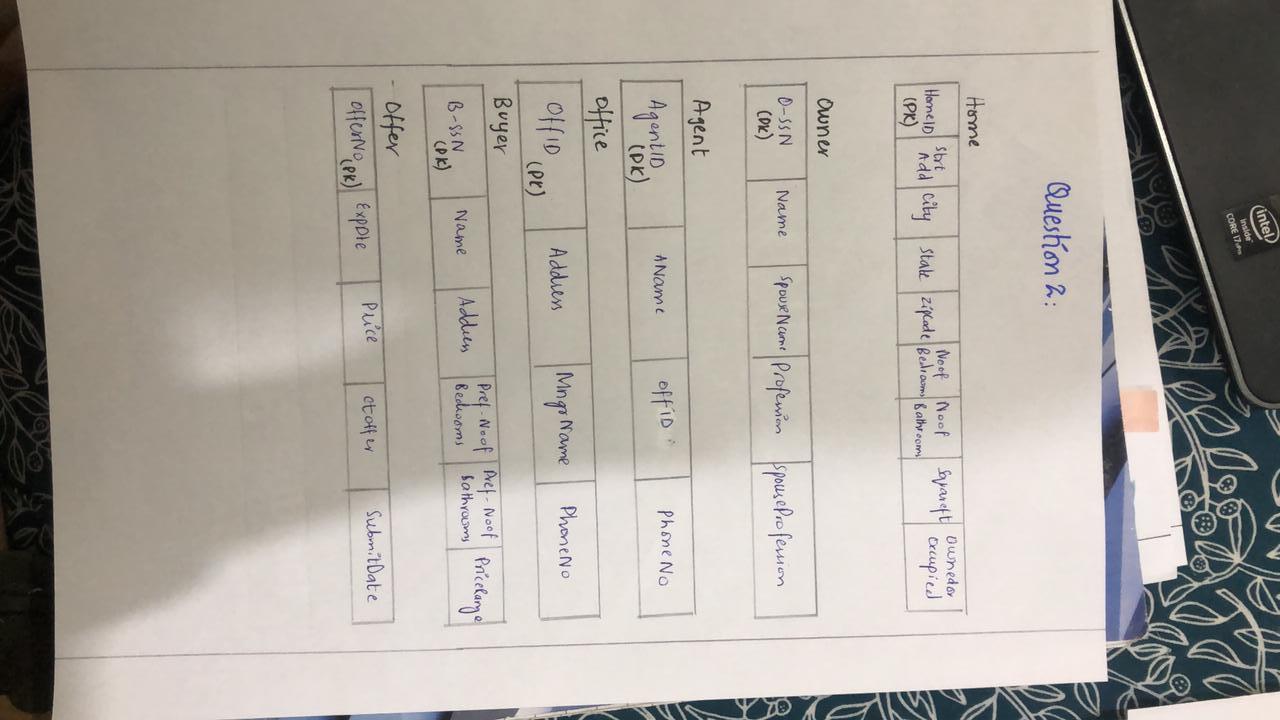 Question 2:
Home
HomeID (PK) | Strt Add | City | State | Zipcode | Noof Bedrooms | Noof Bathrooms | Sqrareft | Ownedor occupied
Owner
O-SSN (PK) | Name | SpouseName | Profession | SpouseProfession
Agent
AgentID (PK) | AName | OffID | PhoneNo
Office
OffID (PK) | Address | MngrName | PhoneNo
Buyer
B-SSN (PK) | Name | Address | Pref-Noof Bedrooms | Pref-Noof Bathrooms | PriceRange
Offer
OfferNo (PK) | ExpDte | Price | ctoffer | SubmitDate
intel
inside
CORE i7 vPro